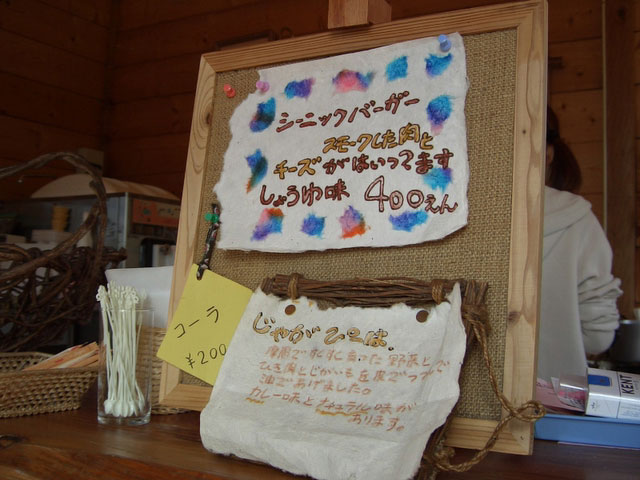 シーニックバーガー
スモークした肉と
チーズがはいってます
しょうゆ味 400えん
コーラ
¥200
じゃが
た野菜と
ひき肉とじゃがいも
油であげました。
カレー味とナチュラル味が
あります。
KENT